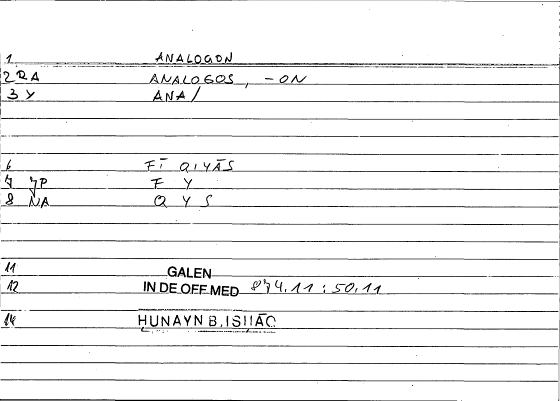 1 ANALOGON
2 RA ANALOGOS, -ON
3 Y ANA/
6 FĪ QIYĀS
7 7P F Y
8 NA Q Y S
11 GALEN
12 IN DE OFF MED 874.11 : 50.11
14 HUNAYN B. ISḤĀQ